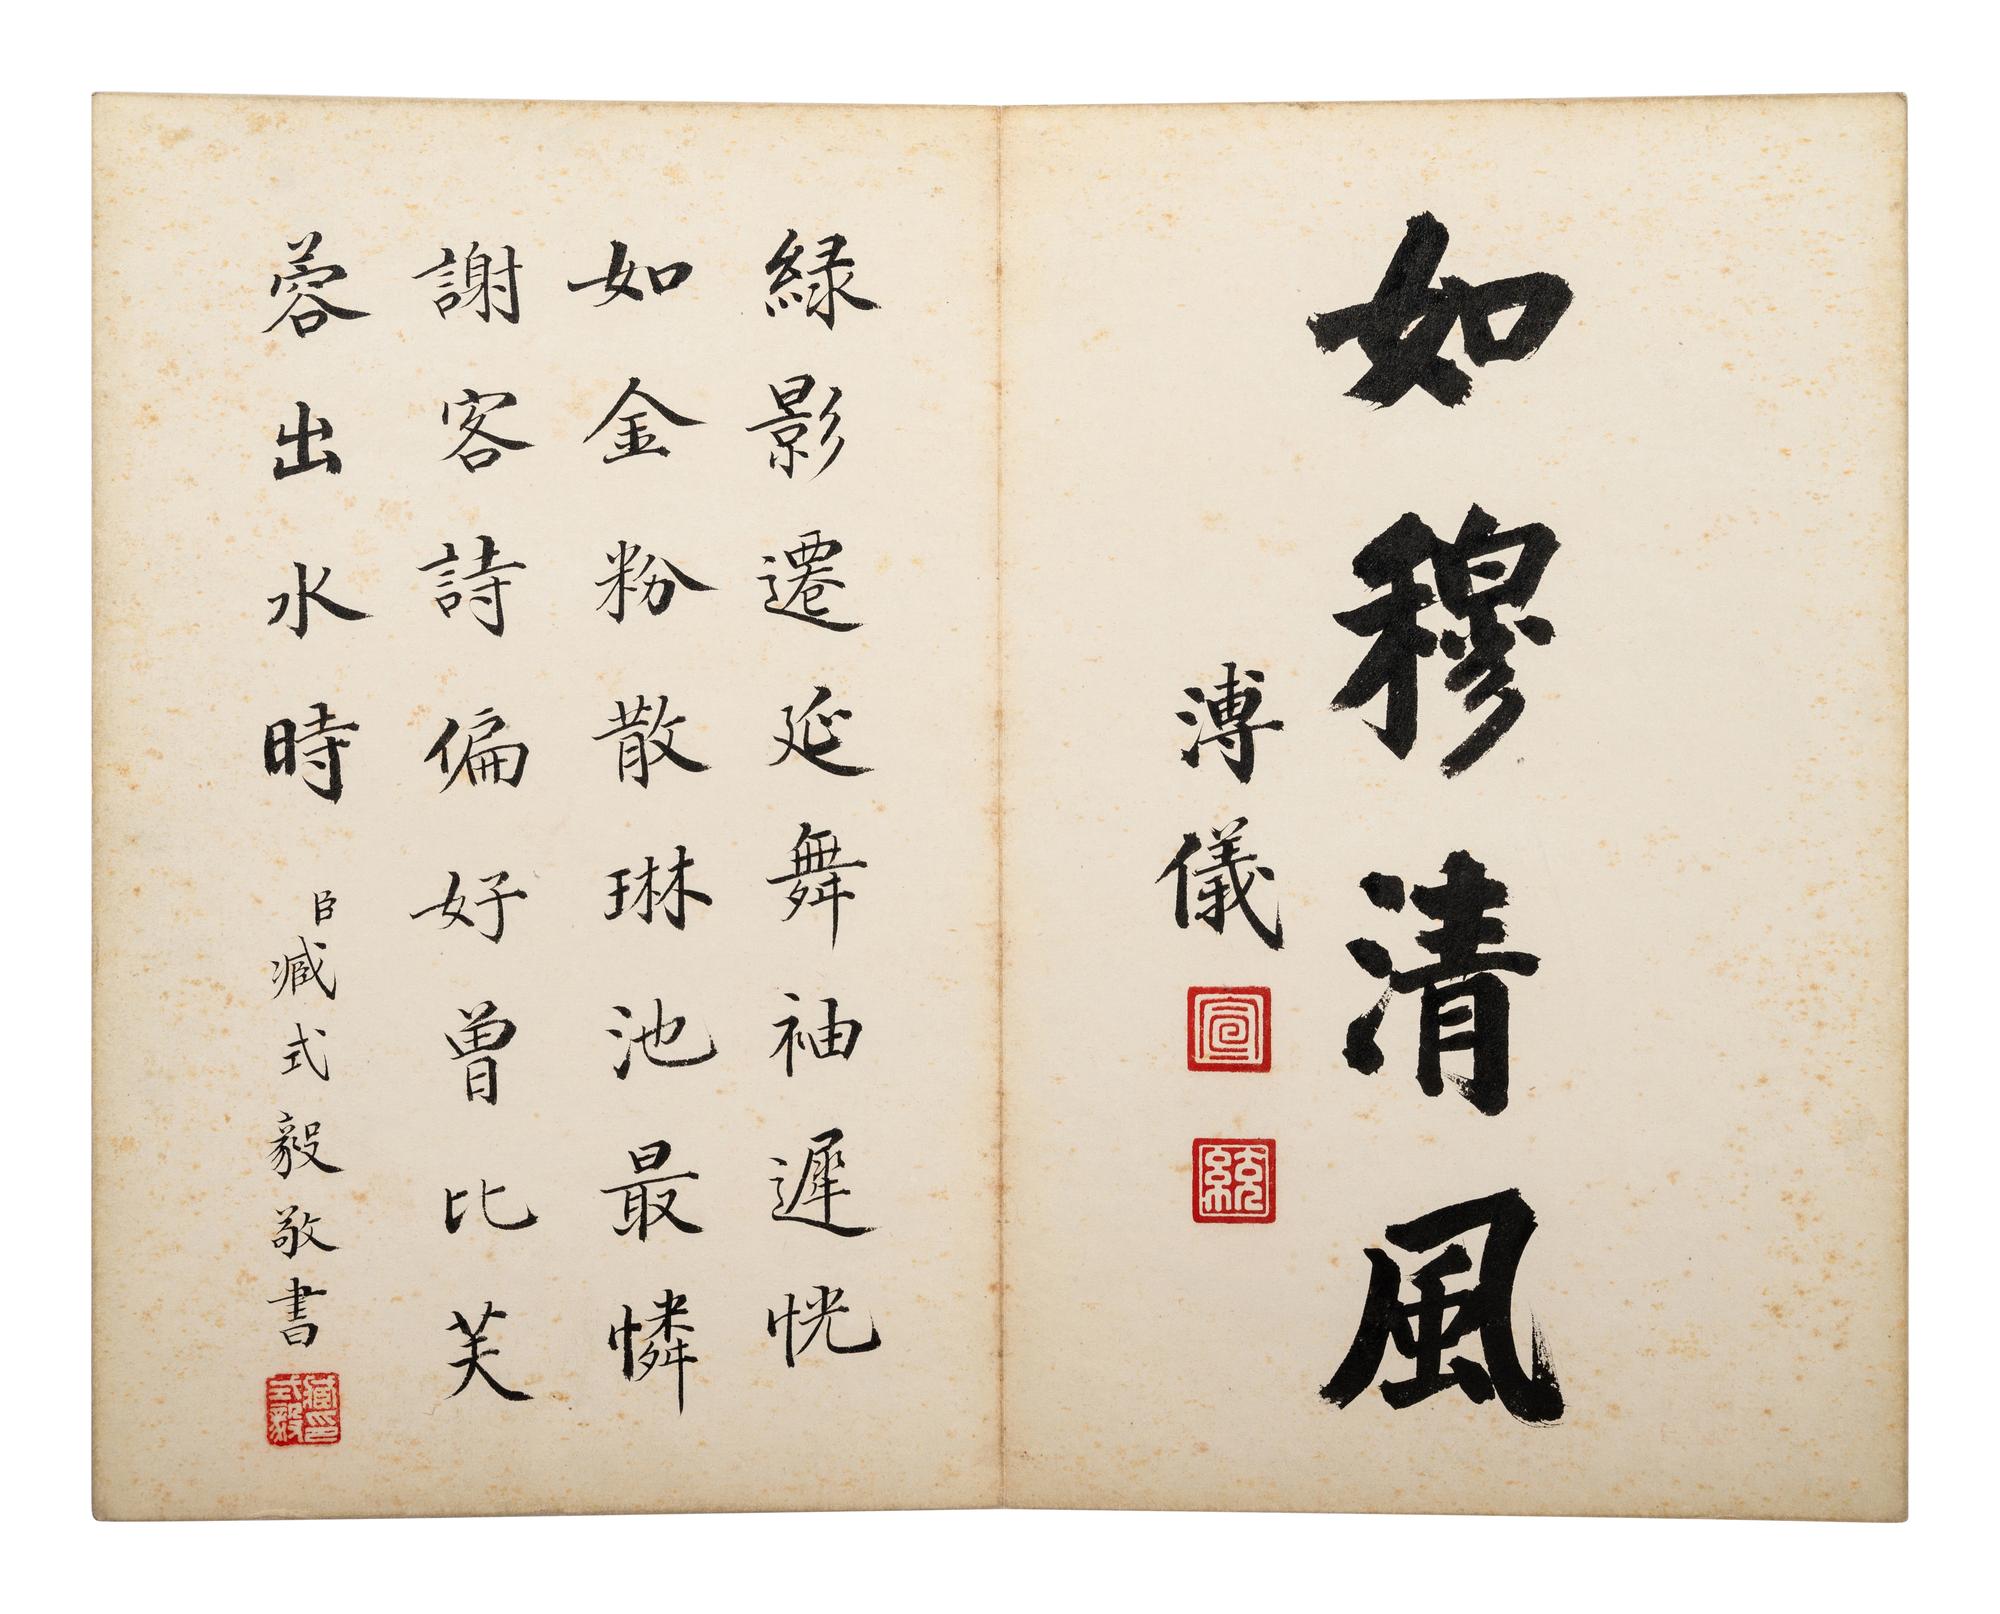 如穆清風
溥儀
宣
統
緑影遷延舞袖遲恍
如金粉散琳池最憐
謝客詩偏好曾比芙
蓉出水時
臣臧式毅敬書
臧式毅印